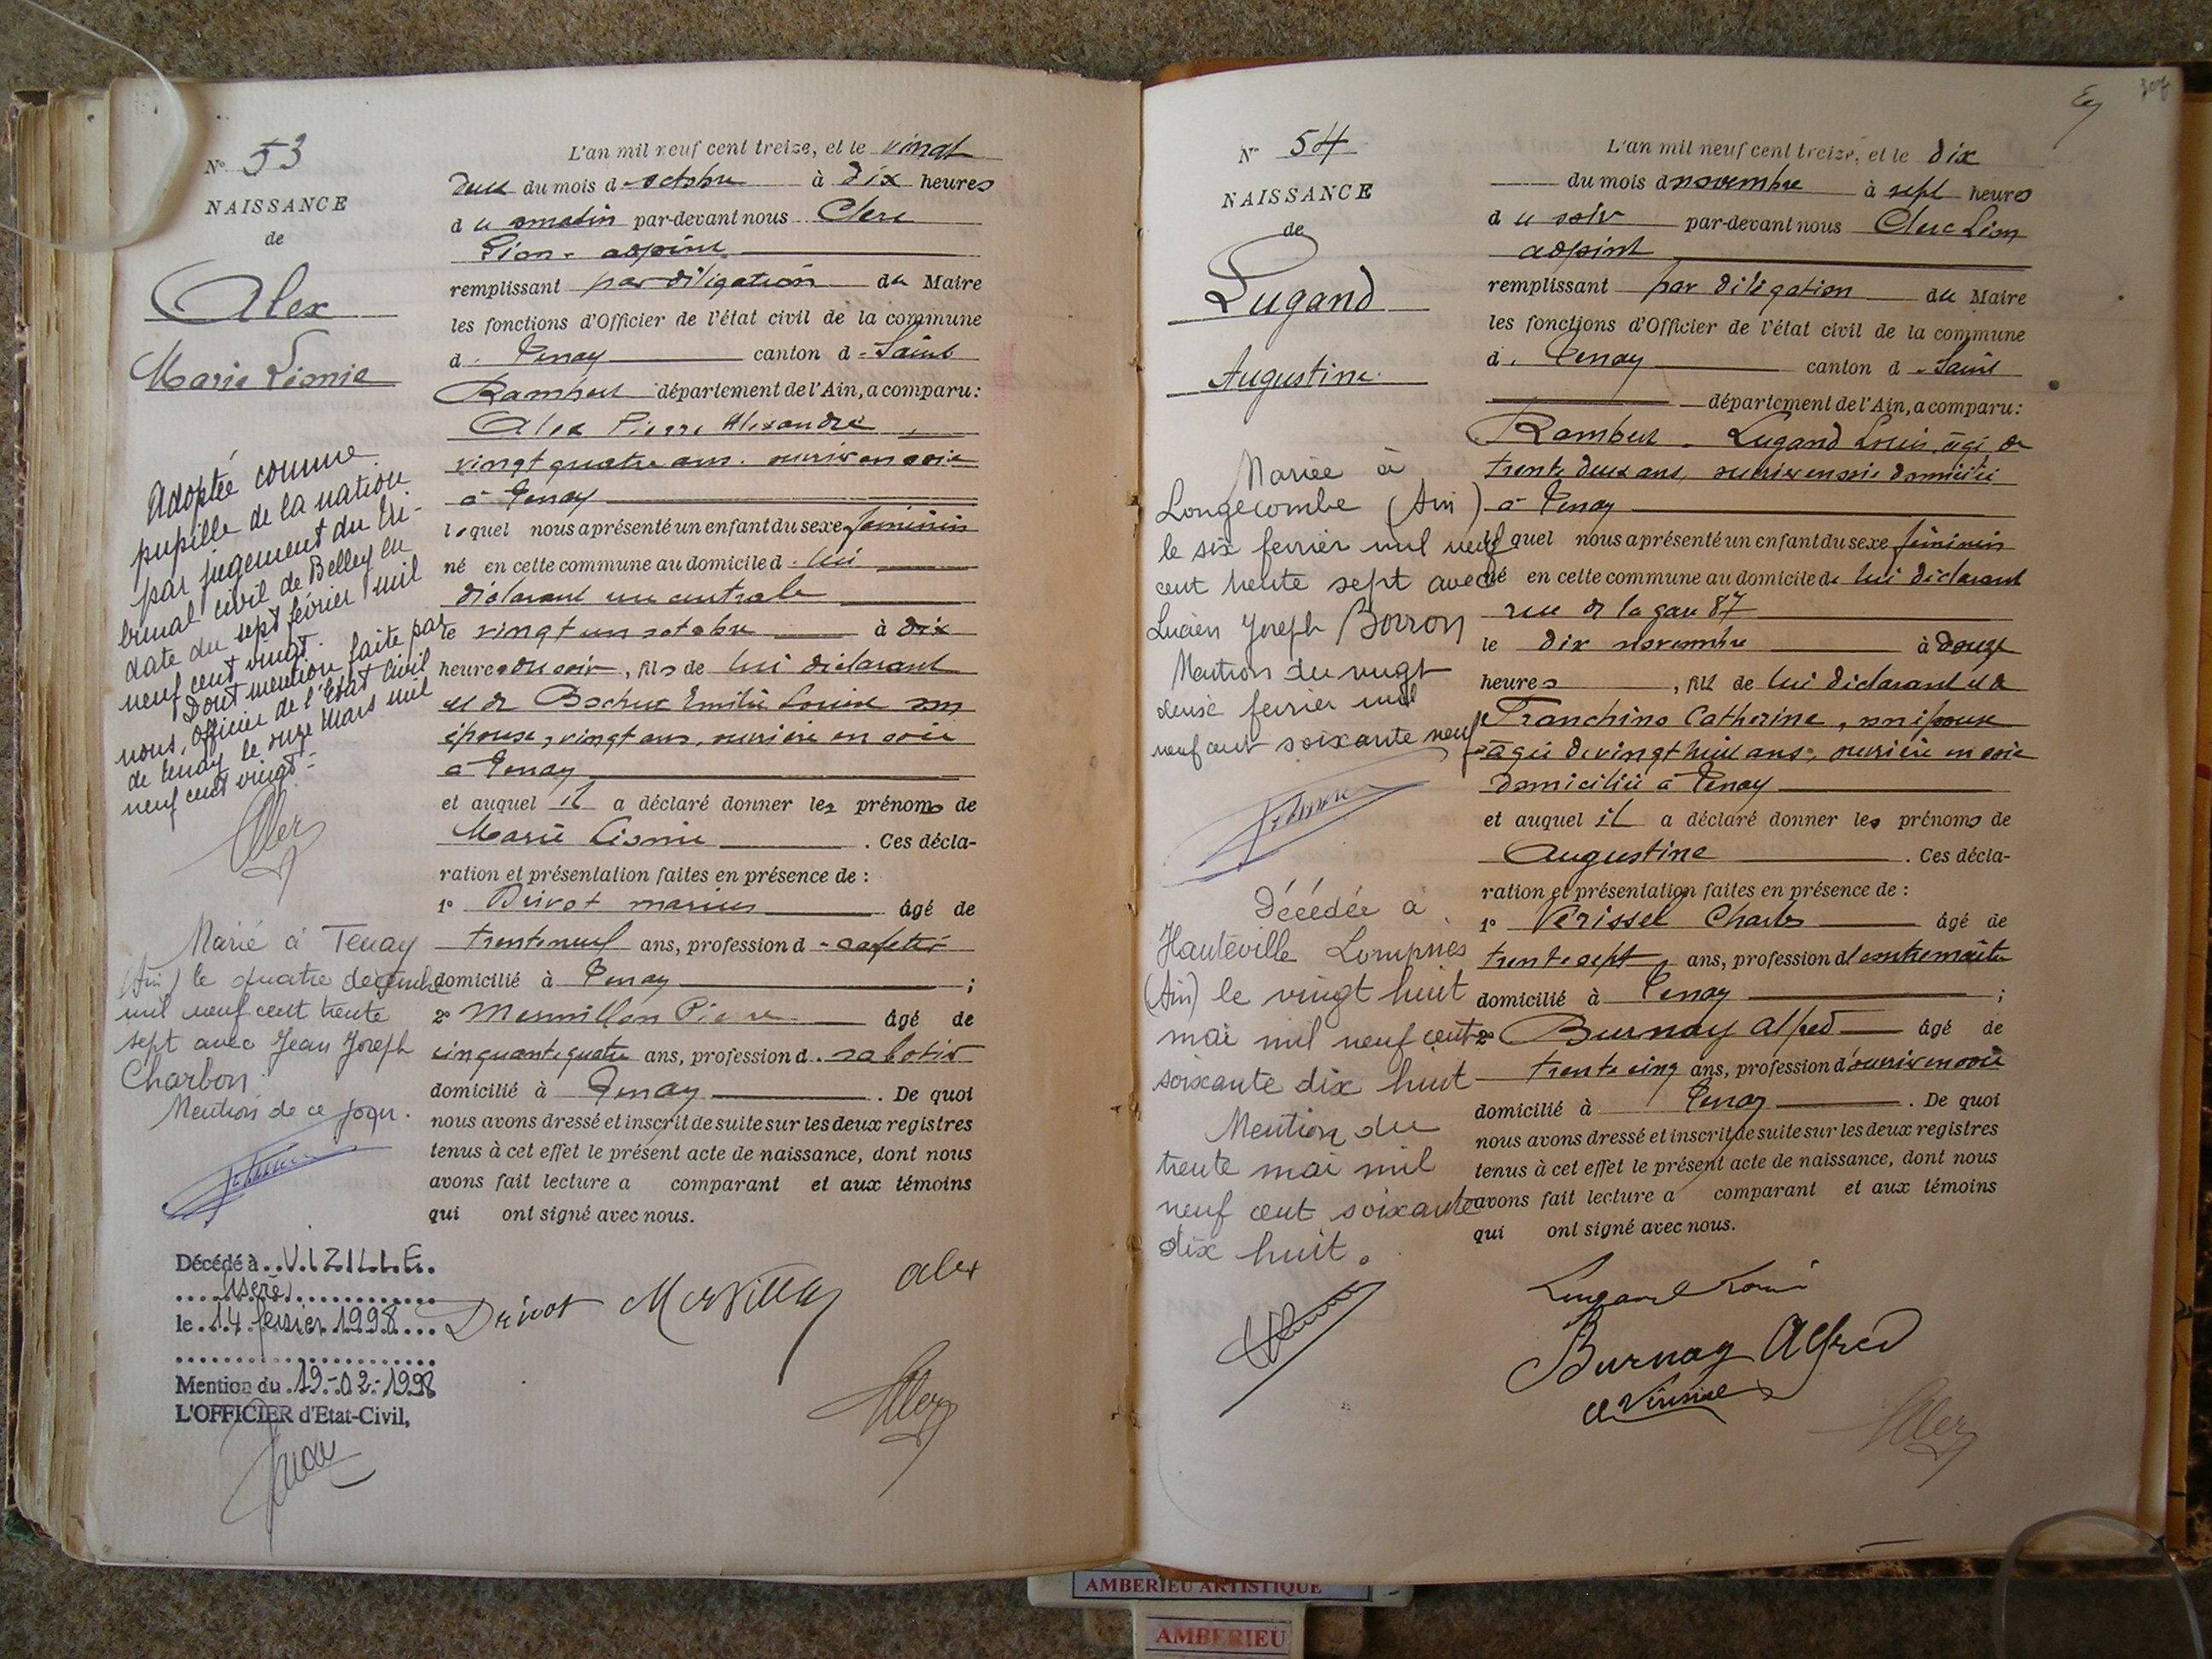 N° 53
NAISSANCE
de
Alex
Marie Léonie
Adoptée comme
pupille de la nation
par jugement du tri-
bunal civil de Belley en
date du sept février mil
neuf cent vingt.
Dont mention faite par
nous, Officier de l'Etat Civil
de Tenay le onze Mars mil
neuf cent vingt.-
Marié à Tenay
(Ain) le quatre décembre
mil neuf cent trente
sept avec Jean Joseph
Charbon.
Mention de ce jour.
Décédé à VIZILLE
Isère
le 14 février 1998
Mention du 19-02-1998
L'OFFICIER d'Etat-Civil,
L'an mil neuf cent treize, et le vingt
deux du mois d'octobre à dix heures
du matin par-devant nous Clerc
Léon - adjoint
remplissant par délégation du Maire
les fonctions d'Officier de l'état civil de la commune
d. Tenay canton d. Saint
Rambert département de l'Ain, a comparu:
Alex Pierre Alexandre
vingt quatre ans. ouvrier en soie
à Tenay
lequel nous a présenté un enfant du sexe féminin
né en cette commune au domicile d. lui
déclarant rue centrale
le vingt un octobre à dix
heures du soir, fils de lui déclarant
et de Bochux Emilie Louise son
épouse, vingt ans, ouvrière en soie
à Tenay
et auquel il a déclaré donner les prénoms de
Marie Léonie . Ces décla-
ration et présentation faites en présence de :
1° Drivot marius âgé de
trente neuf ans, profession d - cafetier
domicilié à Tenay ;
2° Mermillon Pierre âgé de
cinquante quatre ans, profession d. sabotier
domicilié à Tenay . De quoi
nous avons dressé et inscrit de suite sur les deux registres
tenus à cet effet le présent acte de naissance, dont nous
avons fait lecture a comparant et aux témoins
qui ont signé avec nous.
Drivot alex
N° 54
NAISSANCE
de
Lugand
Augustine
Mariée à
Longecombe (Ain)
le six fevrier mil neuf
cent trente sept avec
Lucien Joseph Borron
Mention du vingt
deux fevrier mil
neuf cent soixante neuf
Décédée à
Hauteville Lompnes
(Ain) le vingt huit
mai mil neuf cent
soixante dix huit
Mention du
trente mai mil
neuf cent soixante
dix huit.
L'an mil neuf cent treize, et le dix
du mois d novembre à sept heures
du soir par-devant nous Clerc Léon
adjoint
remplissant par délégation du Maire
les fonctions d'Officier de l'état civil de la commune
d. Tenay canton d. Saint
département de l'Ain, a comparu:
Rambert - Lugand Louis, âgé de
trente deux ans, ouvrier en soie domicilié
à Tenay
lequel nous a présenté un enfant du sexe féminin
né en cette commune au domicile de lui déclarant
rue de la gare 87
le dix novembre à douze
heures , fille de lui déclarant et de
Franchino Catherine, son épouse
âgée de vingt huit ans, ouvrière en soie
domiciliée à Tenay
et auquel il a déclaré donner les prénoms de
Augustine . Ces décla-
ration et présentation faites en présence de :
1° Vérissel Charles âgé de
trente sept ans, profession de contremaître
domicilié à Tenay ;
2° Burnay Alfred âgé de
trente cinq ans, profession d'ouvrier en soie
domicilié à Tenay . De quoi
nous avons dressé et inscrit de suite sur les deux registres
tenus à cet effet le présent acte de naissance, dont nous
avons fait lecture a comparant et aux témoins
qui ont signé avec nous.
Lugand Louis
Burnay Alfred
AMBERIEU ARTISTIQUE
AMBERIEU